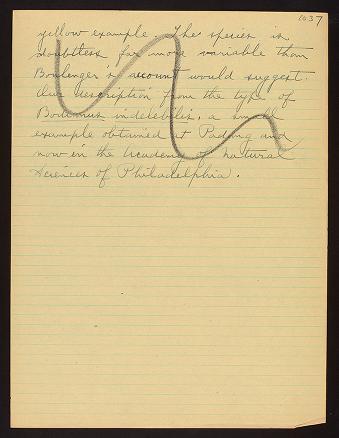 1037
yellow example. The species is
doubtless far more variable than
Boulenger's account would suggest.
Our description from the type of
Bodianus indelebilis, a small
example obtained at Padang and
now in the Academy of Natural
Sciences of Philadelphia.